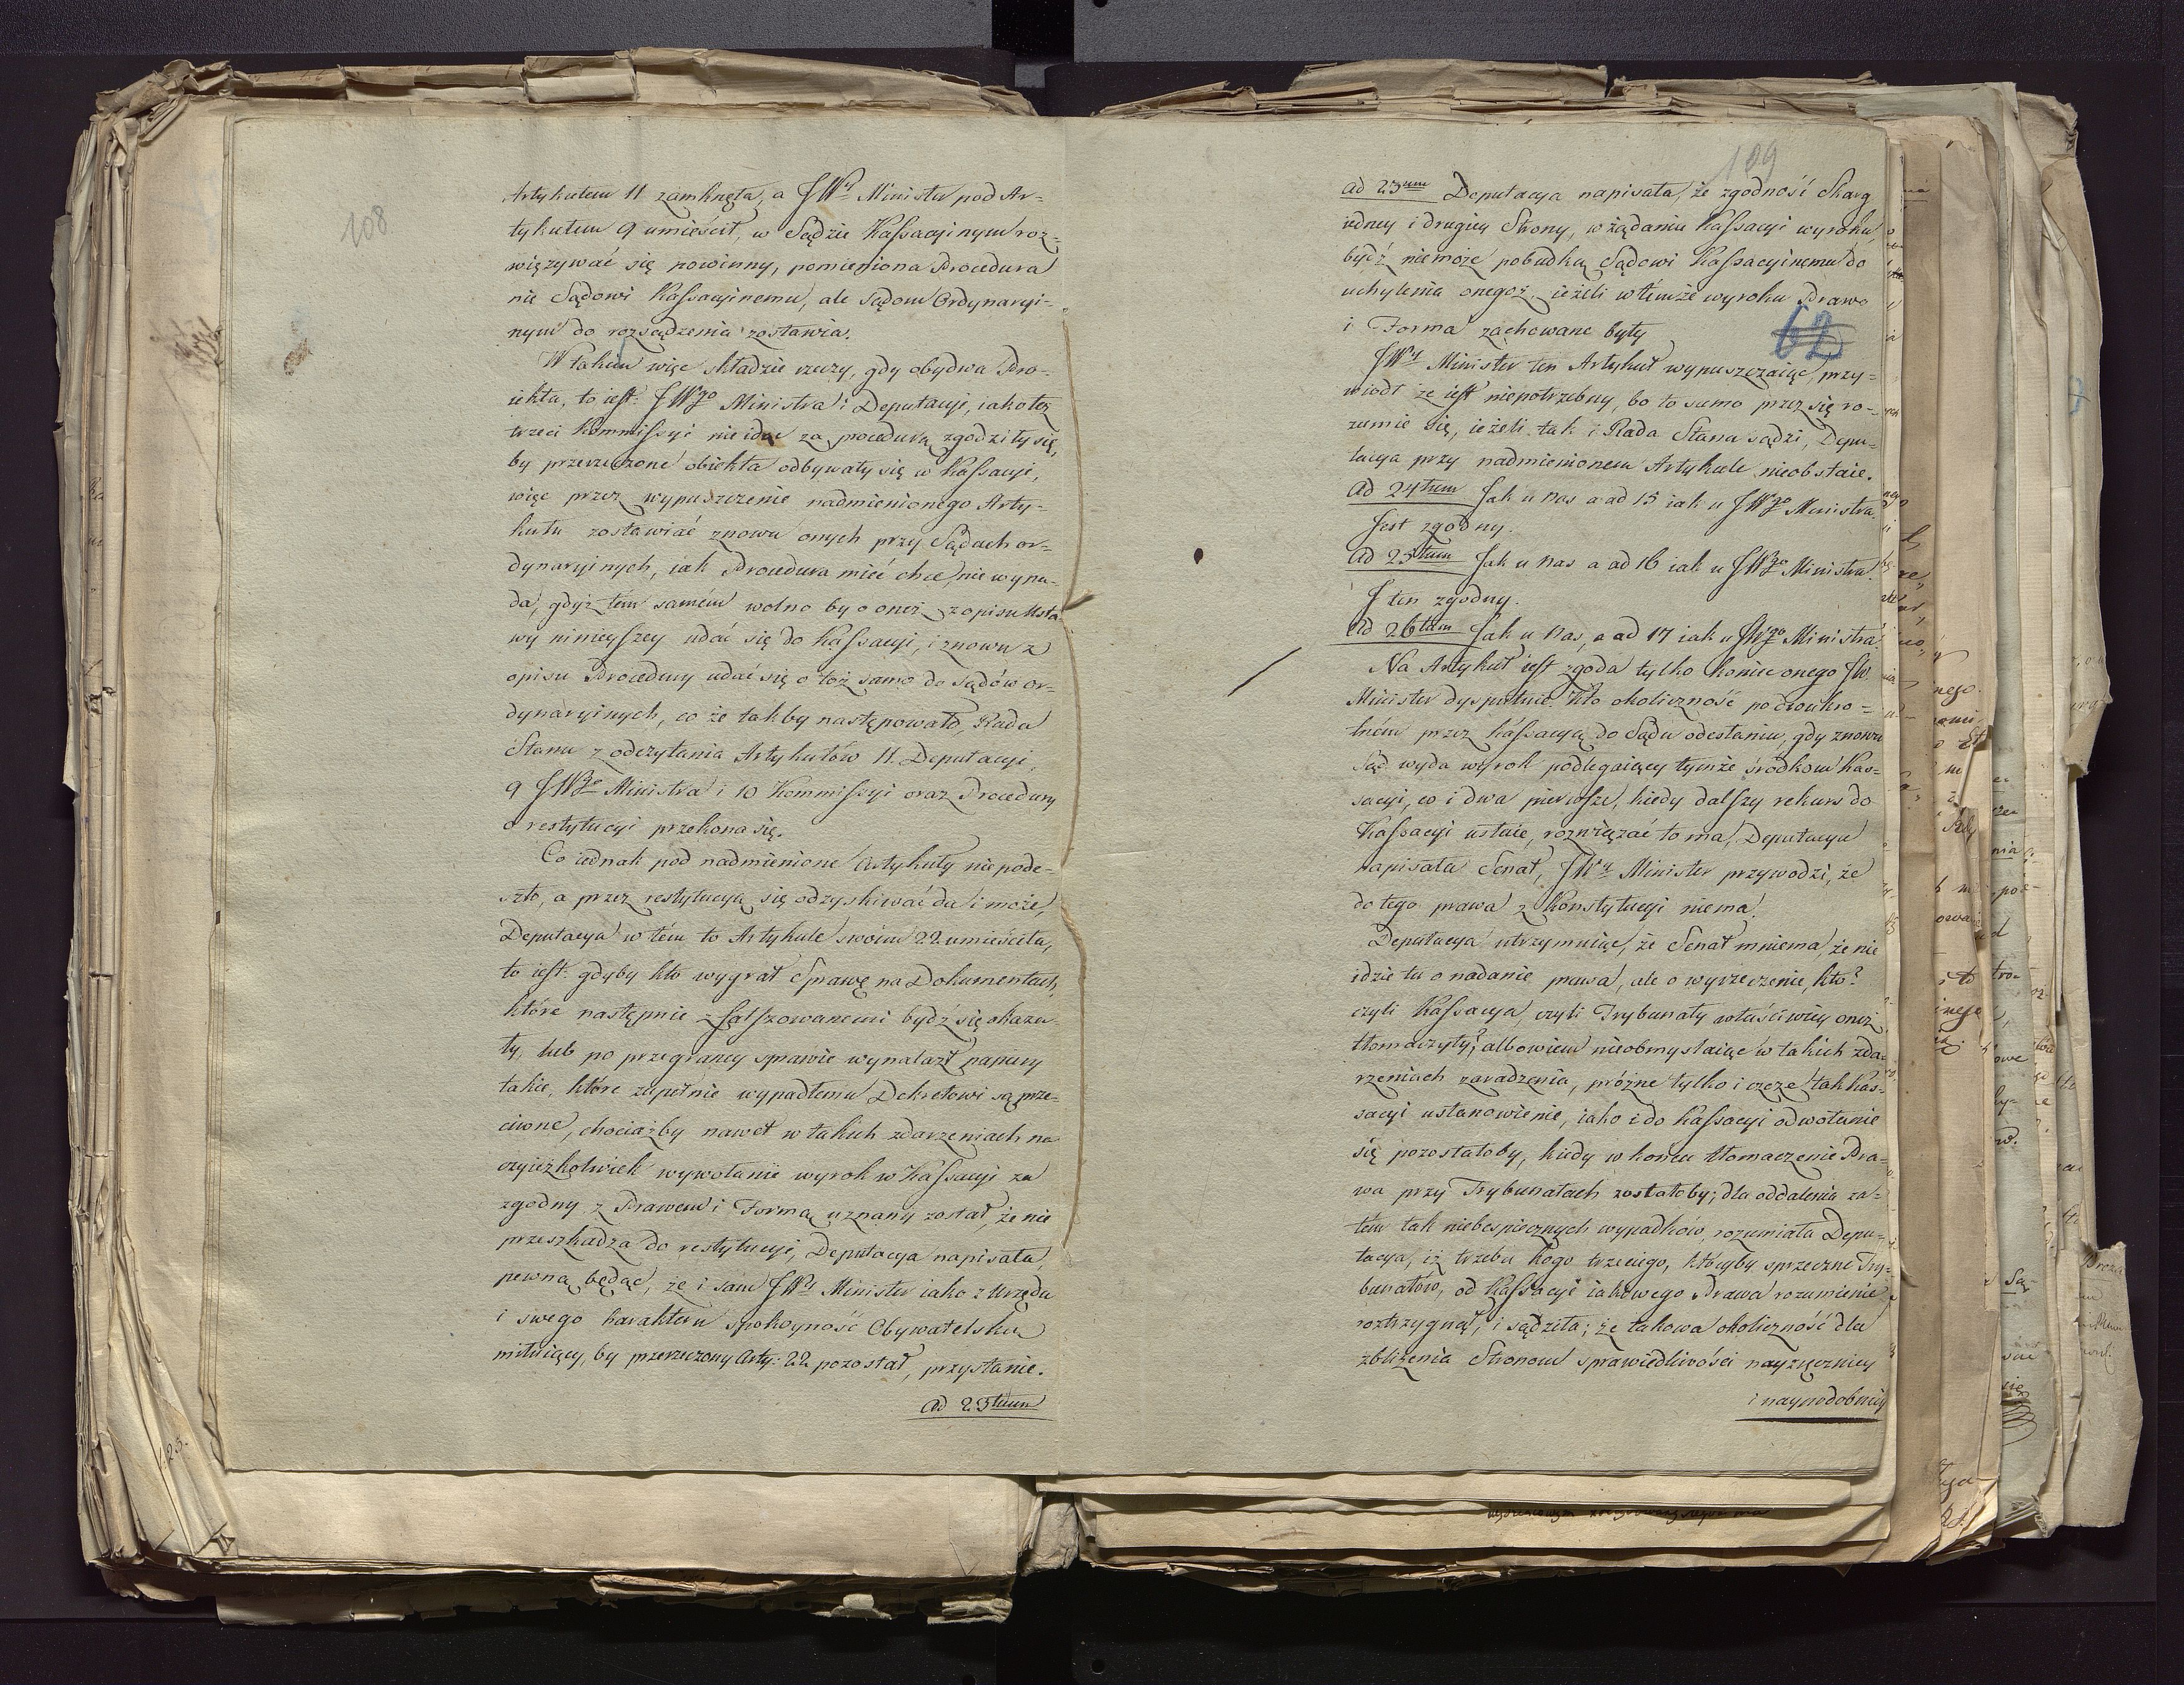 108
Artykułem 11 zamknęta, a JWy Minister pod Ar-
tykułem 9 umieścił, w Sądzie Kassacyinym roz-
więzywać się powinny, pomieniona Procedura
nie Sądowi Kassacyinemu, ale Sądom Ordynaryi-
nym do rozsądzenia zostawia.
W takim więc składzie rzeczy, gdy obydwa Pro-
iekta, to iest: JWgo Ministra i Deputacyi, iako też
trzeci Kommissyi nie idąc za procedurą zgodziły się,
by przerzeczone obiekta odbywały się w Kassacyi,
więc przez wypuszczenie nadmienionego Arty-
kułu zostawiać znowu onych przy Sądach or-
dynaryinych, iak Procedura mieć chce, nie wypa-
da, gdyż tem samém wolno by o oneż z opisu Usta
wy ninieyszey udać się do Kassacyi, i znowu z
opisu Procedury udać się o toż samo do sądów or-
dynaryinych, co że tak by następowało, Rada
Stanu z odczytania Artykułów 11. Deputacyi,
9 JWgo Ministra i 10 Kommissyi oraz Procedury
o restytucyi przekona się.
Co iednak pod nadmienione Artykuły nie pode-
szło, a przez restytucyą się odzyskiwać da i może,
Deputacya w tém to Artykule swoim 22 umieściła,
to iest: gdyby kto wygrał Sprawę na Dokumentach,
które następnie sfałszowanemi bydź się okaza-
ły, lub po przegraney sprawie wynalazł papiery
takie, które zupełnie wypadłemu Dekretowi są prze-
ciwne, chociażby nawet w takich zdarzeniach na
czyieżkolwiek wywołanie wyrok w Kassacyi za
zgodny z Prawem i Formą uznany został, że nie
przeszkadza do restytucyi, Deputacya napisała,
pewną będąc, że i sam JWy Minister iako z Urzędu
i swego karakteru spokoyność Obywatelską
miłuiący, by przerzeczony Arty: 22 pozostał, przystanie.
Ad 23tium
109
ad 23um Deputacya napisała, że zgodność Skarg
iedney i drugiey Strony, w żądaniu Kassacyi wyroku,
bydź niemoże pobudką Sądowi Kassacyinemu do
uchylenia onegoż, ieżeli w temże wyroku Prawo
i Forma zachowane były
62
JWy Minister ten Artykuł wypuszczaiąc, przy-
wiodł że iest niepotrzebny, bo to samo przez się ro-
zumie się, ieżeli tak i Rada Stanu sądzi, Depu-
tacya przy nadmienionem Artykule nieobstaie.
Ad 24tum Jak u nas a ad 15 iak u JWgo Ministra.
Jest zgodny.
Ad 25tum Jak u nas a ad 16 iak u JWgo Ministra.
J ten zgodny.
Ad 26tum Jak u nas, a ad 17 iak u JWgo Ministra.
Na Artykuł iest zgoda tylko koniec onego JW.
Minister dysputuie. Kto okoliczność po dwukro-
tném przez Kassacyą do Sądu odesłaniu, gdy znowu
Sąd wyda wyrok podlegaiący tymże środkom Kas-
sacyi, co i dwa pierwsze, kiedy dalszy rekurs do
Kassacyi ustaie, rozwięzać to ma, Deputacya
napisała Senat, JWy Minister przywodzi, że
do tego prawa z Konstytucyi niema.
Deputacya utrzymuiąc, że Senat mniema, że nie
idzie tu o nadanie prawa, ale o wyrzeczenie, kto?
czyli Kassacya, czyli Trybunały właściwiey oneż
tłomaczyły? albowiem nieobmyslaiąc w takich zda-
rzeniach zaradzenia, próżne tylko i czcze tak Kas-
sacyi ustanowienie, iako i do Kassacyi odwołanie
się pozostałoby, kiedy w końcu tłomaczenie Pra-
wa przy Trybunałach zostałoby; dla oddalenia za-
tém tak niebespiecznych wypadków, rozumiała Depu-
tacya, iż trzeba kogo trzeciego, któryby sprzeczne Try-
bunałów, od Kassacyi iakowego Prawa rozumienie
roztrzygnął, i sądziła; że takowa okoliczność dla
zbliżenia Stronom sprawiedliwości nayzręczniey
i naypodobniey